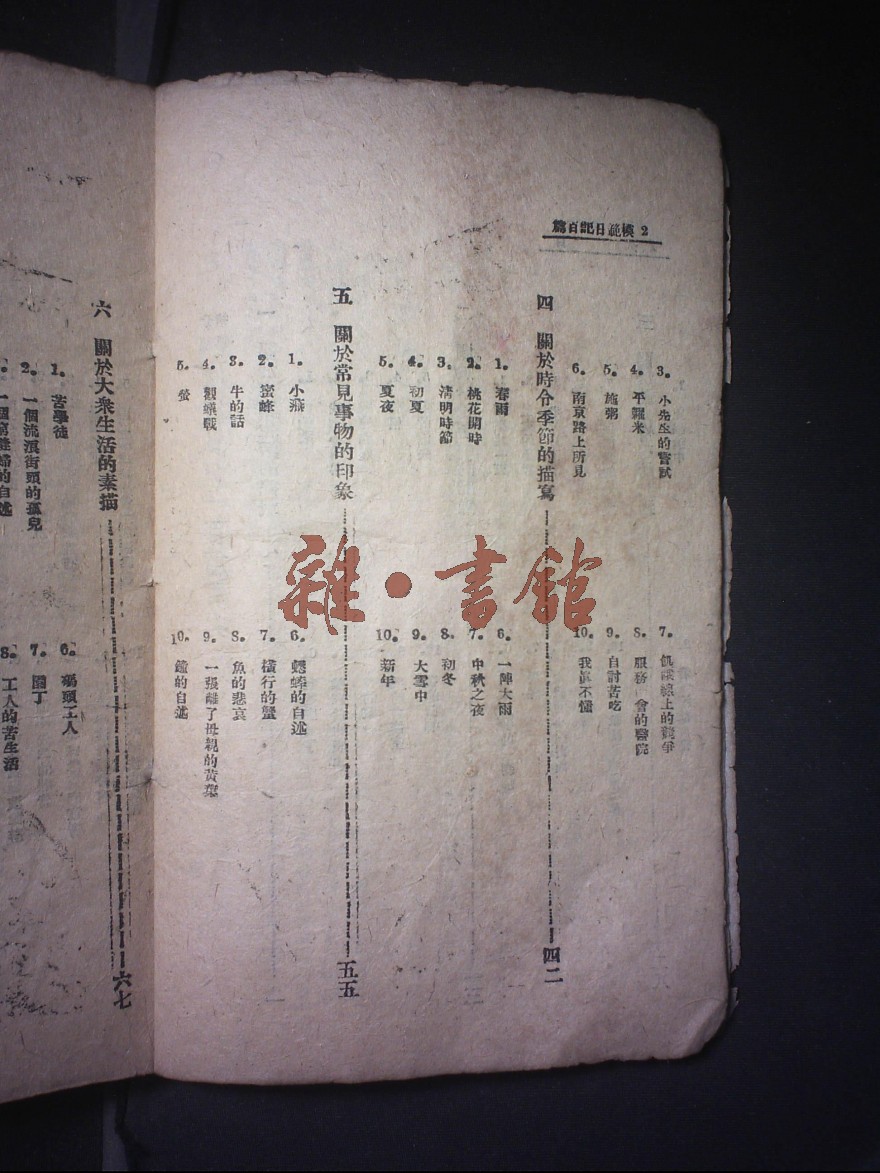 2 模範日記百篇
3. 小先生的嘗試
4. 平糶米
5. 施粥
6. 南京路上所見
7. 飢餓線上的競爭
8. 服務 會的醫院
9. 自討苦吃
10. 我眞不懂
四 關於時令季節的描寫 四二
1. 春雨
2. 桃花開時
3. 淸明時節
4. 初夏
5. 夏夜
6. 一陣大雨
7. 中秋之夜
8. 初冬
9. 大雪中
10. 新年
五 關於常見事物的印象 五五
1. 小燕
2. 蜜蜂
3. 牛的話
4. 觀蟻戰
5. 螢
6. 蟋蟀的自述
7. 橫行的蟹
8. 魚的悲哀
9. 一張離了母親的黃葉
10. 鐘的自述
六 關於大衆生活的素描 六七
1. 苦學徒
2. 一個流浪街頭的孤兒
一個 婦的自述
6. 碼頭工人
7. 園丁
8. 工人的苦生活
雜·書館